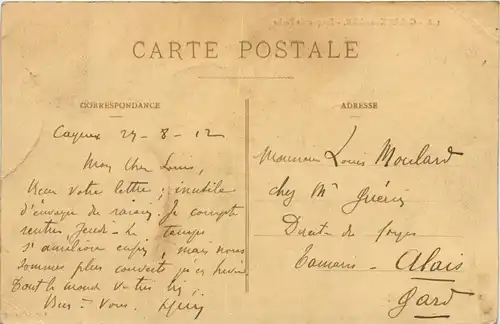 CARTE POSTALE
CORRESPONDANCE
Cayeux 27-8-12
Mon Cher Louis,
Reçu votre lettre; inutile
d'envoyer de raisin. Je compte
rentrer Jeudi. Le temps
s'améliore enfin, mais nous
sommes plus
Tout le monde va très bien
ADRESSE
Monsieur Louis Moulard
chez Mr Guérin
Direct. de forges
Tamaris - Alais
Gard